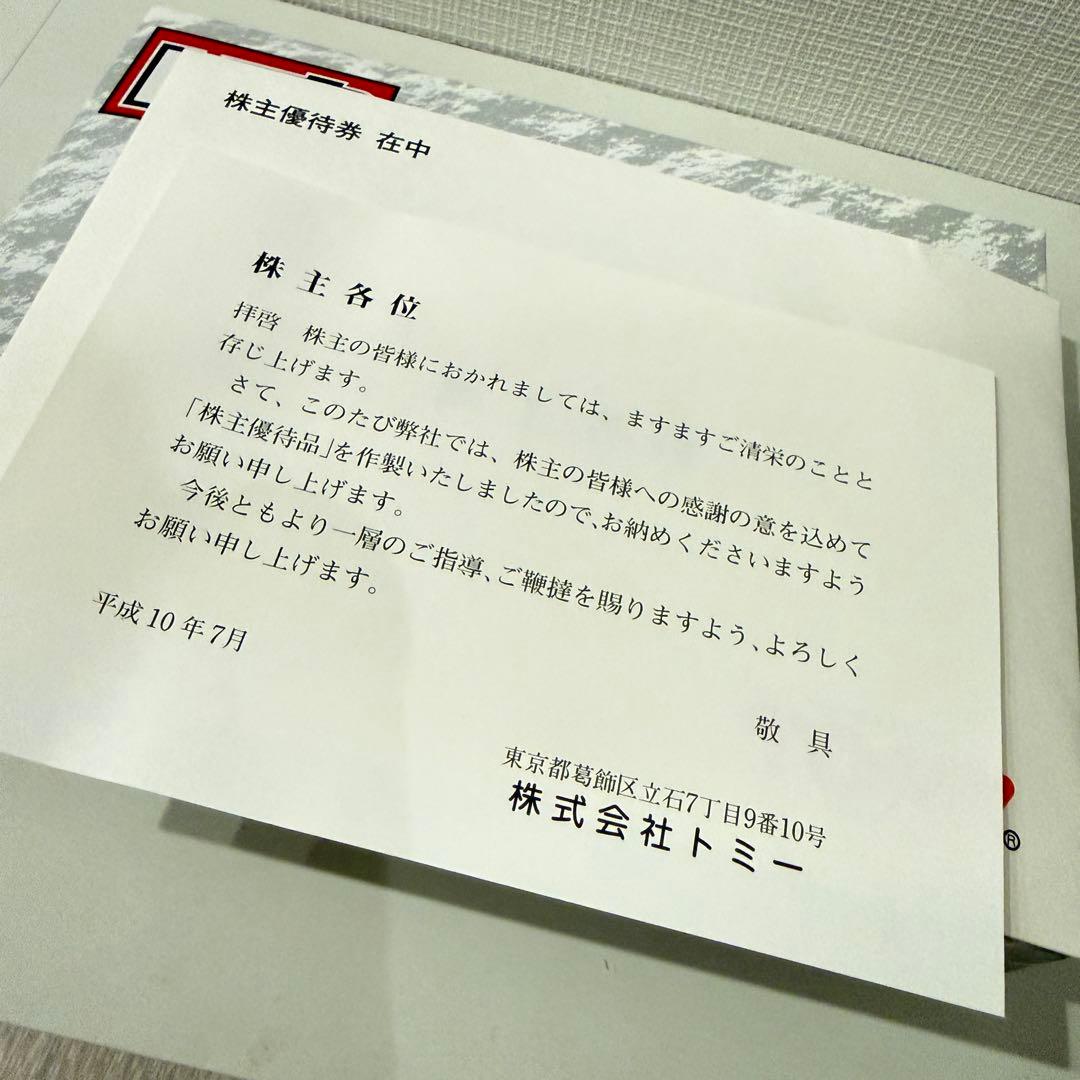 株主優待券 在中
株主各位
拝啓 株主の皆様におかれましては、ますますご清栄のことと
存じ上げます。
さて、このたび弊社では、株主の皆様への感謝の意を込めて
「株主優待品」を作製いたしましたので、お納めくださいますよう
お願い申し上げます。
今後ともより一層のご指導、ご鞭撻を賜りますよう、よろしく
お願い申し上げます。
平成10年7月
敬 具
東京都葛飾区立石7丁目9番10号
株式会社トミー
®